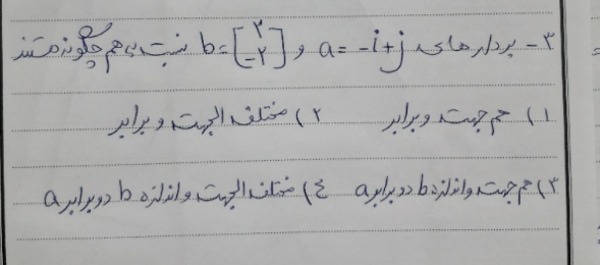 ۳- بردارهای a = -i+j و b = [۲ -۲] نسبت به هم چگونه هستند
۱) هم جهت و برابر ۲) مختلف الجهت و برابر
۳) هم جهت و اندازه b دو برابر a ٤) مختلف الجهت و اندازه b دو برابر a